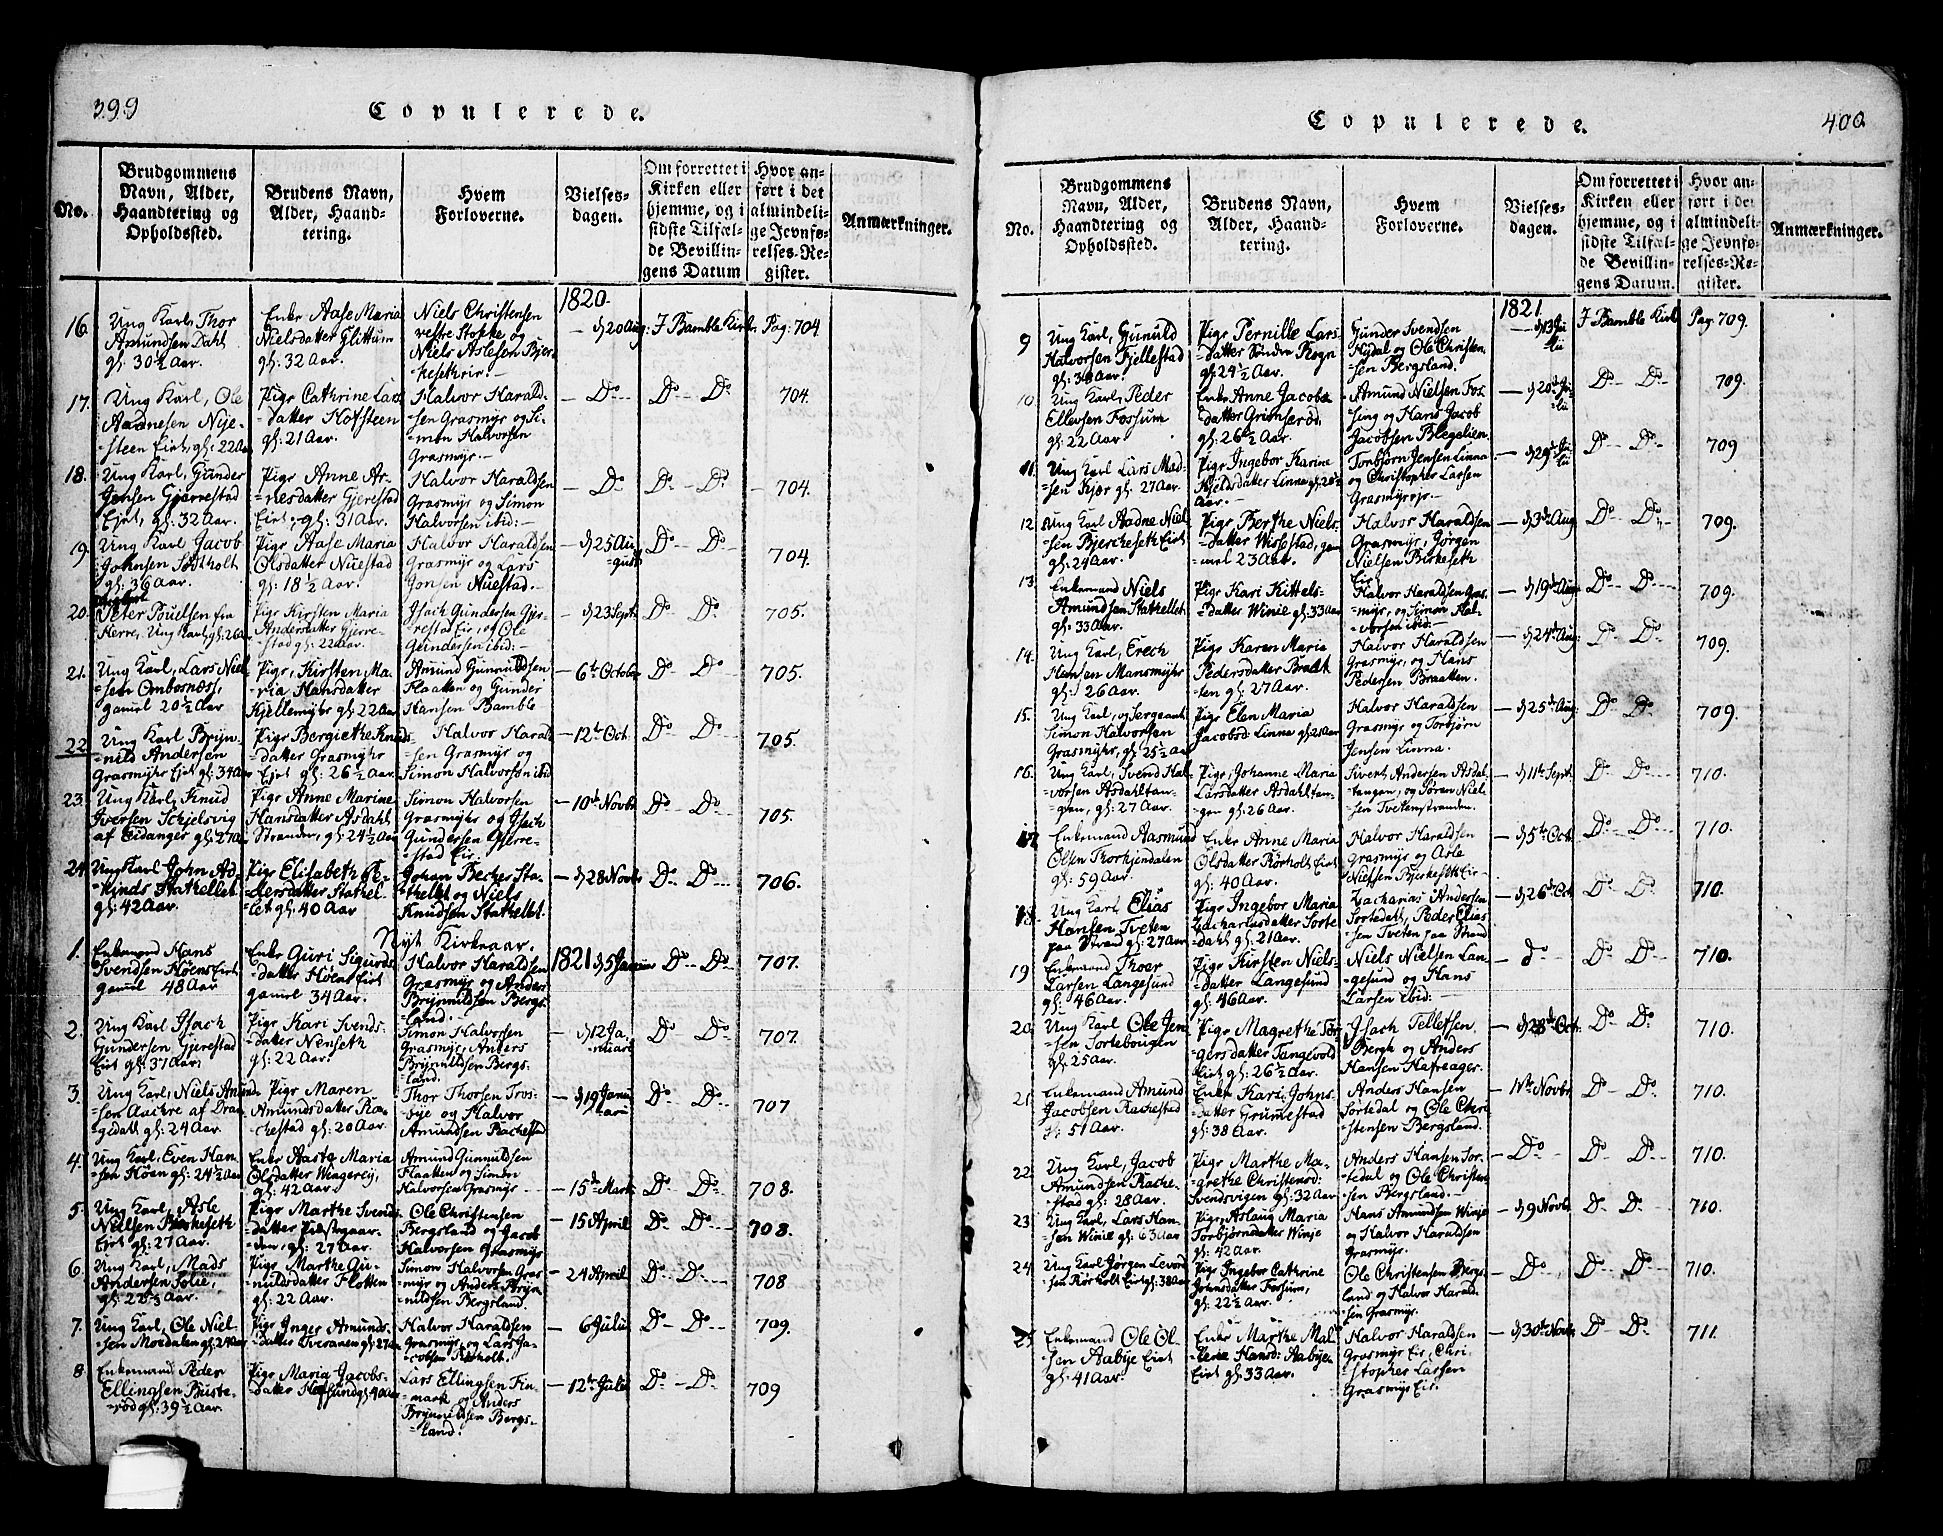 399
Copulerede.
No.
Brudgommens
Navn, Alder,
Haandtering og
Opholdssted.
Brudens Navn,
Alder, Haand-
tering.
Hvem
Forloverne.
Vielses-
dagen.
Om forrettet i
Kirken eller
hjemme, og i
sidste Tilfæl-
de Bevillin-
gens Datum
Hvor an-
ført i det
almindeli-
ge Jevnfø-
relses-Re-
gister.
Anmærkninger.
1820.
16.
Ung Karl Thor
Amundsen Dahl
gl: 30½ Aar.
Enke Aase Maria
Nielsdatter Glittum
gl: 32 Aar.
Niels Christensen
vestre Stokke og
Niels Aslesen Bjer-
keseth
– d 20 Aug:
I Bamble Kirke
Pag: 704
17.
Ung Karl, Ole
Aadnesen Nÿe-
steen Eiet, gl: 22 Aar
Pige Cathrine Lars
datter Kofsteen
gl: 21 Aar.
Halvor Harald-
sen Grasmÿr og Si-
mon Halvorsen
Grasmÿr.–
– Do
Do – Do
704.
18.
Ung Karl, Gunder
Jensen Gjerrestad
Eiet, gl: 32 Aar.
Pige Anne Ar-
nesdatter Gjerestad
Eiet, gl: 31 Aar.
Halvor Haraldsen
Grasmÿr og Simon
Halvorsen ibid:–
– Do
Do – Do
704.
19.
Ung Karl Jacob
Johnsen Tostholt
gl: 36 Aar.
Pige Aase Maria
Olsdatter Nuestad
gl: 18½ Aar.
Halvor Haraldsen
Grasmÿr og Lars
Jonsen Nuestad.–
– d 25 Au
gust
Do – Do
704.
20.
Peter Pouelsen fra
Herre, Ung Karl, gl: 26 Aar
Pige Kirsten Maria
Andersdatter Gjerre-
stad gl: 22 Aar
Isach Gundersen Gjer-
restad Eie, og Ole
Gundersen ibid:–
– d 23 Septr
Do – Do
705.
21.
Ung Karl, Lars Niel
sen Ombosnæss,
gamel 20½ Aar
Pige, Kirsten Ma-
ria Hansdatter
Kjellemÿhr gl: 22 Aar
Amund Gunnuldsen
Flaatten og Gunder
Hansen Bamble
– 6te October
Do – Do
705.
22.
Ung Karl Brÿn-
nild Andersen
Grasmÿhr Eiet gl: 34 Aar
Pige Bergiethe Knuds
datter Grasmÿhr
Eiet gl: 26½ Aar
Halvor Harald
sen Grasmÿr og
Simon Halvorsen ibid
– 12te Oct.
Do – Do
705.
23.
Ung Karl, Knud
Iversen Schjelsvig
af Eidanger gl: 27 Aar
Pige Anne Marine
Hansdatter Asdahl
Stranden, gl: 24½ Aar
Simon Halvorsen
Grasmÿhr og Isach
Gundersen Gjerre-
stad Eie.
– 10de Novbr
Do – Do
705.
24.
Ung Karl John Ad-
Kinds Stathellet
gl: 42 Aar.
Pige Elisabeth Pe-
dersdatter Stathel-
let gl: 40 Aar
Johan Becher Sta-
thellet og Niels
Knudsen Stathellet.
– d 28 Novbr
Do – Do
706.
Nÿt Kirkeaar.
1821
1.
Enkemand Hans
Svendsen Høens Eiet
gamel 48 Aar
Enke Guri Sigurds
datter Høens Eiet
gamel 34 Aar.
Halvor Haraldsen
Grasmÿr og Anders
Brÿnnildsen Bergs-
land.–
d 5 Januar
Do – Do
707.
2.
Ung Karl Isach
Gundersen Gjerestad
Eiet gl: 37 Aar
Pige Kari Svends-
datter Nenseth
gl: 22 Aar.
Simon Halvorsen
Grasmÿr, Anders
Brÿnnildsen Bergs-
land.
– d 12 Ja-
nuari
Do – Do
707.
3.
Ung Karl, Niels Amund-
sen Aackre af Dran-
gedahl gl: 24 Aar
Pige Maren
Amundsdatter Ra-
chestad gl: 20 Aar.
Thor Thorsen Tros-
bÿe og Halvor
Amundsen Rachestad
– d 19 Janu
ari
Do – Do
707
4.
Ung Karl, Even Han-
sen Höen gl: 24½ Aar
Enke Aaste Maria
Olsdatter Wingereÿ,
gl: 42 Aar.
Amund Gunnuldsen
Flaatten og Simon
Halvorsen Grasmÿr –
– 15de Marts
Do Do
708.
5.
Ung Karl, Asle
Nielsen Bjerkeseth
Eiet gl: 27 Aar.
Pige Marthe Svends
datter
den, gl: 27 Aar.
Ole Christensen
Bergsland og Jacob
Halvorsen Grasmÿr
– 15 April
Do – Do
708.
6.
Ung Karl, Mads
Andersen Solie,
gl: 22⅓ Aar.
Pige Marthe Gu-
nuldsdatter Flotten
gl: 22 Aar.
Simon Halvorsen Gras-
mÿr og Anders Brÿn-
nildsen Bergsland.
– 24 April
Do – Do
708
7.
Ung Karl, Ole Niel-
sen Moedalen gl: 24 Aar
Pige Inger Amunds-
datter gl: 27 Aar
Halvor Haraldsen
Grasmÿr, og Lars Ja-
cobsen Rørholt.
– 6 Julii
Do – Do
709.
8
Enkemand Peder
Ellingsen Buste-
rød gl: 39½ Aar.
Pige Maria Jacobs-
datter gl: 40 Aar
Lars Ellingsen Fin-
mark og Anders
Brÿnnildsen Bergs-
land.
– 12te Julii
Do – Do
709
400.
Copulerede.
No.
Brudgommens
Navn, Alder,
Haandtering og
Opholdssted.
Brudens Navn,
Alder, Haand-
tering.
Hvem
Forloverne.
Vielses-
dagen.
Om forrettet i
Kirken eller
hjemme, og i
sidste Tilfæl-
de Bevillin-
gens Datum.
Hvor an-
ført i det
almindeli-
ge Jevnfø-
relses-Re-
gister.
Anmærkninger.
1821.
9
Ung Karl, Gunuld
Halvorsen Fjellestad
gl: 30 Aar.
Pige Pernille Lars-
datter Søndre Rogn
gl: 24½ Aar.
Gunder Svendsen
Nÿdal og Ole Christen-
sen Bergsland.
– d 13 Ju
lii
I Bamble Kirke
Pag: 709.
10.
Ung Karl, Peder
Ellevsen Fossum
gl: 22 Aar
Enke Anne Jacobs
datter Grönserød,
gl: 26½ Aar.
Amund Nielsen Fos-
sing og Hans Jacob
Jacobsen Blegelien.
– d 20de Ju-
lii
Do – Do
709.
11.
Ung Karl Lars Mad-
sen Kjær gl: 27 Aar
Pige Ingebor Karine
Kjeldsdatter Linna gl: 20½
Aar.–
Torbjörn Jensen Linna
og Christopher Larsen
Grasmÿr.–
– d 29de Ju
lii
Do – Do
709
12.
Ung Karl Aadne Niel-
sen Bjerckeseth Eiet
gl: 24 Aar.
Pige Berthe Niels-
datter Wissestad, ga-
mel 23 Aar.
Halvor Haraldsen
Grasmÿr, Jørgen
Nielsen Birkeseth
Eie
– d 3de Aug
Do Do
709.
13.
Enkemand Niels
Amundsen Stathellet
gl: 33 Aar.
Pige Kari Kittels-
datter Winie gl: 33 Aar
Halvor Haraldsen Gras-
mÿr, og Simon Hal-
vorsen ibid:–
– d 19de Aug
Do Do
709.
14.
Ung Karl, Erech
Hensen Mansmÿhr
gl: 26 Aar.
Pige Karen Maria
Pedersdatter Braat-
ten gl: 27 Aar.
Halvor Haraldsen
Grasmÿr, og Hans
Pedersen Braatten.
– d 24de Aug:
Do Do
709.
15.
Ung Karl, og Sergeant
Simon Halvorsen
Grasmÿhr, gl: 25½ Aar
Pige Elen Maria
Jacobsd: Linna gl: 28 Aar
Halvor Haraldsen
Grasmÿr og Torbjørn
Jensen Linna.
– d 25de Aug:
Do Do
709.
16.
Ung Karl, Svend Hal-
vorsen Asdahltan-
gen, gl: 27 Aar.
Pige, Johanne Maria
Larsdatter Asdahltan-
gen gl: 26 Aar.
Sivert Andersen Asdal-
tangen, og Søren Niel-
sen Tvetenstranden.
– d 11te Sept.
Do Do
710.
17.
Enkemand Aasmund
Olsen Thorkjendalen
gl: 59 Aar.
Enke Anne Maria
Olsdatter Rørholt Eiet
gl: 40 Aar.
Halvor Haraldsen
Grasmÿr og Asle
Nielsen Bjerkeseth Eie–
– d 5te Oct.
Do – Do
710.
18.
Ung Karl Elias
Hansen Tveten
paa Strand gl: 27 Aar
Pige Ingebor Maria
Zachariasdatter Torte-
dahl gl: 21 Aar.
Zacharias Andersen
Tortedahl, Peder Elias
sen Tveten paa Strand
– d 26de Oct.
Do Do
710.
19
Enkemand Thoer
Larsen Langesund
gl: 46 Aar.
Pige Kirsten Niels-
datter Langesund
gl: 46 Aar.
Niels Nielsen Lan-
gesund og Hans
Larsen ibid:–
– do
Do Do
710.
20.
Ung Karl Ole Jen-
sen Tortebougen
gl: 25 Aar.
Pige Magrethe Tor
gersdatter Tangevold
Eiet gl: 26½ Aar.
Isach Tellefsen
Bergh og Anders
Hansen Hafreager.
– d 28de Oct.
Do Do
710.
21.
Enkemand Amund
Jacobsen Rachestad
gl: 51 Aar.
Enke Kari Johns-
datter Grumestad
gl: 38 Aar.
Anders Hansen
Tortedal og Ole Chri-
stensen Bergsland.
– 11te Novbr
Do – Do
710.
22.
Ung Karl, Jacob
Amundsen Rache-
stad gl: 28 Aar.
Pige Marthe Ma-
grethe Christensd:
Svendsvigen gl: 32 Aar
Anders Hansen Tor-
tedal og Ole Christen-
sen Bergsland.–
– Do
Do Do
710.
23.
Ung Karl, Lars Han-
sen Winie gl: 63 Aar
Pige, Aslaug Maria
Torbjörnsdatter Winje
gl: 42 Aar.
Hans Amundsen Winje
og Halvor Haraldsen
Grasmÿr.
– d 9 Novbr
Do – Do
710.
24.
Ung Karl Jørgen Levord
sen Rörholt Eiet gl: 38 Aar
Pige Ingebor Cathrine
Jensdatter Fossum,
gl: 22½ Aar
Ole Christensen Bergs-
land og Halvor Harald-
sen Grasmÿr.
– Do
Do Do
710.
25
Enkemand Ole Ol-
sen Aabÿe Eiet
gl: 41 Aar.
Enke Marthe Mal-
lene Hansd: Aabÿe
Eiet gl: 33 Aar.
Halvor Haraldsen
Grasmÿr Eie, Chri-
stopher Larsen
Grasmÿr Eie.
– d 30te Novbr
Do – Do
711.